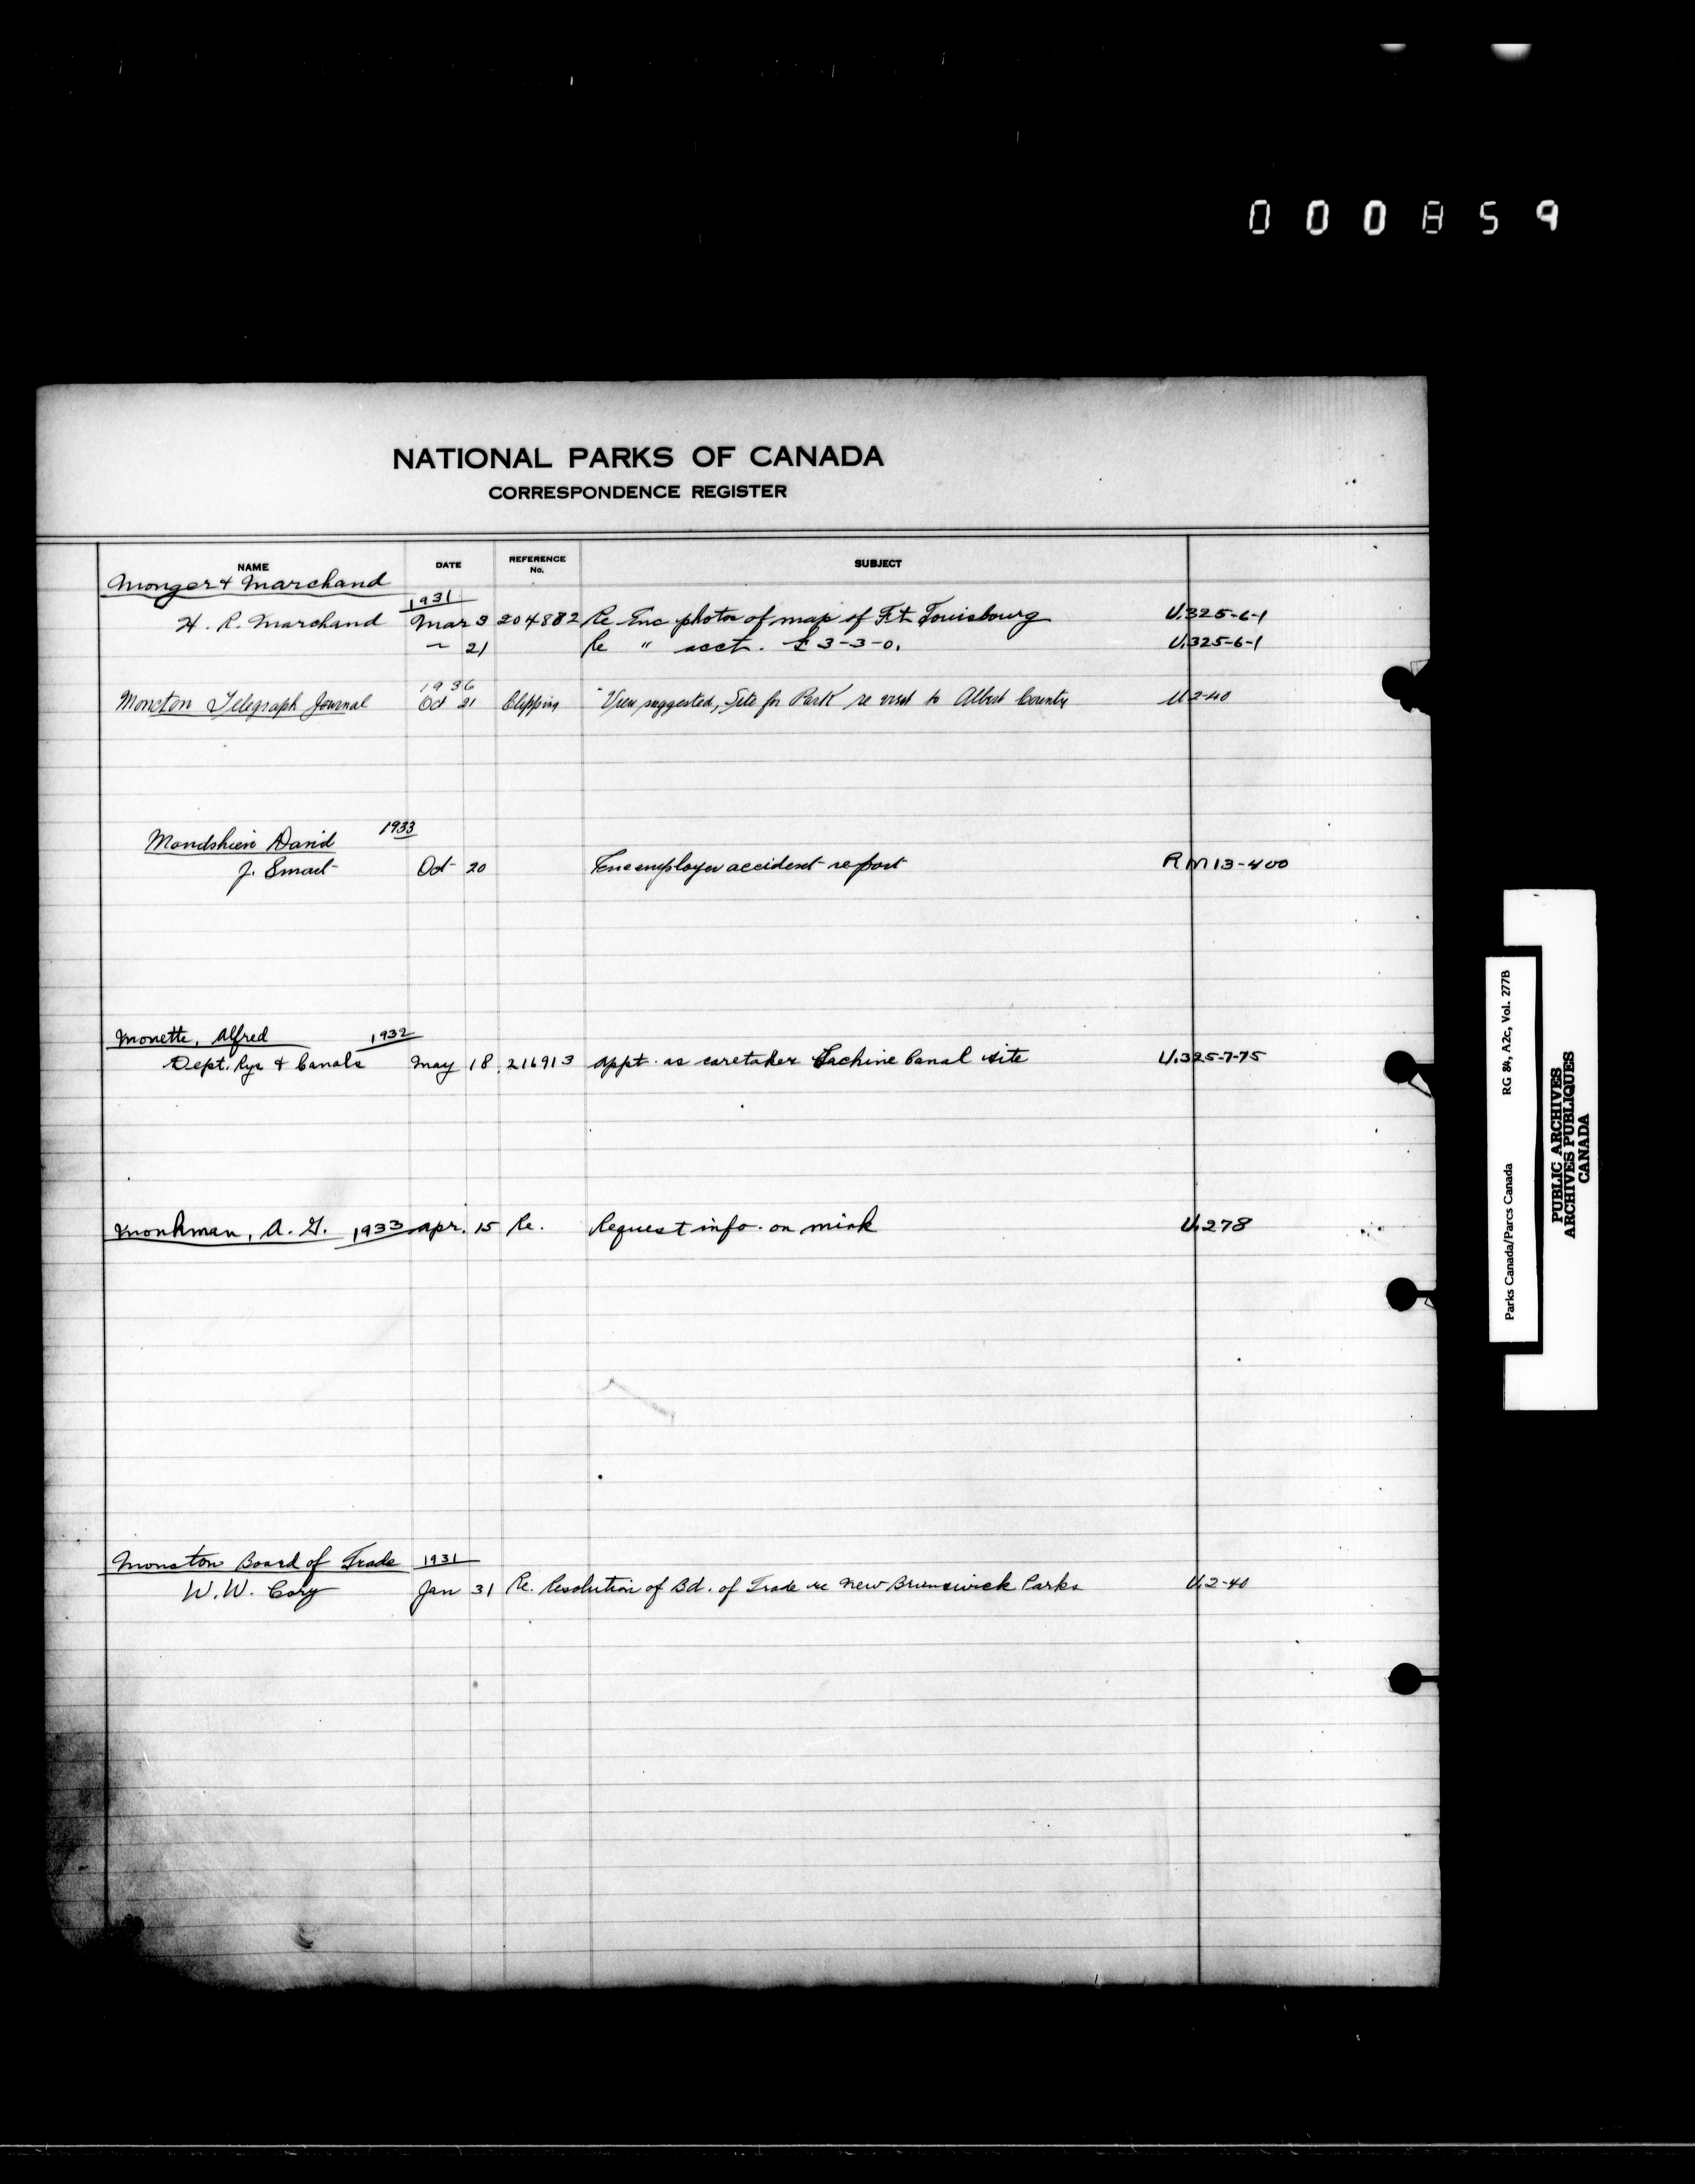 000859
NATIONAL PARKS OF CANADA
CORRESPONDENCE REGISTER
NAME DATE REFERENCE No. SUBJECT
Monger & Marchand
1931
H. R. Marchand Mar 3 204882 Re Enc photos of map of Ft Louisbourg U.325-6-1
21 Re " acct. £3-3-0. U.325-6-1
1936
Moncton Telegraph Journal Oct 21 Clipping "View suggested, Site for Park re visit to Albert County U2-40
1933
Mondshien David
J. Smart Oct 20 Enc employer accident report RM13-400
Monette, Alfred 1932
Dept. Rys & Canals May 18 216913 appt. as caretaker Lachine Canal site U.325-7-75
Monkman, A. G. 1933 Apr. 15 Re. Request info. on mink U.278
Moncton Board of Trade 1931
W. W. Cory Jan 31 Re. Resolution of Bd. of Trade re New Brunswick Parks U.2-40
Parks Canada/Parcs Canada RG 84, A2c, Vol. 277B
PUBLIC ARCHIVES
ARCHIVES PUBLIQUES
CANADA